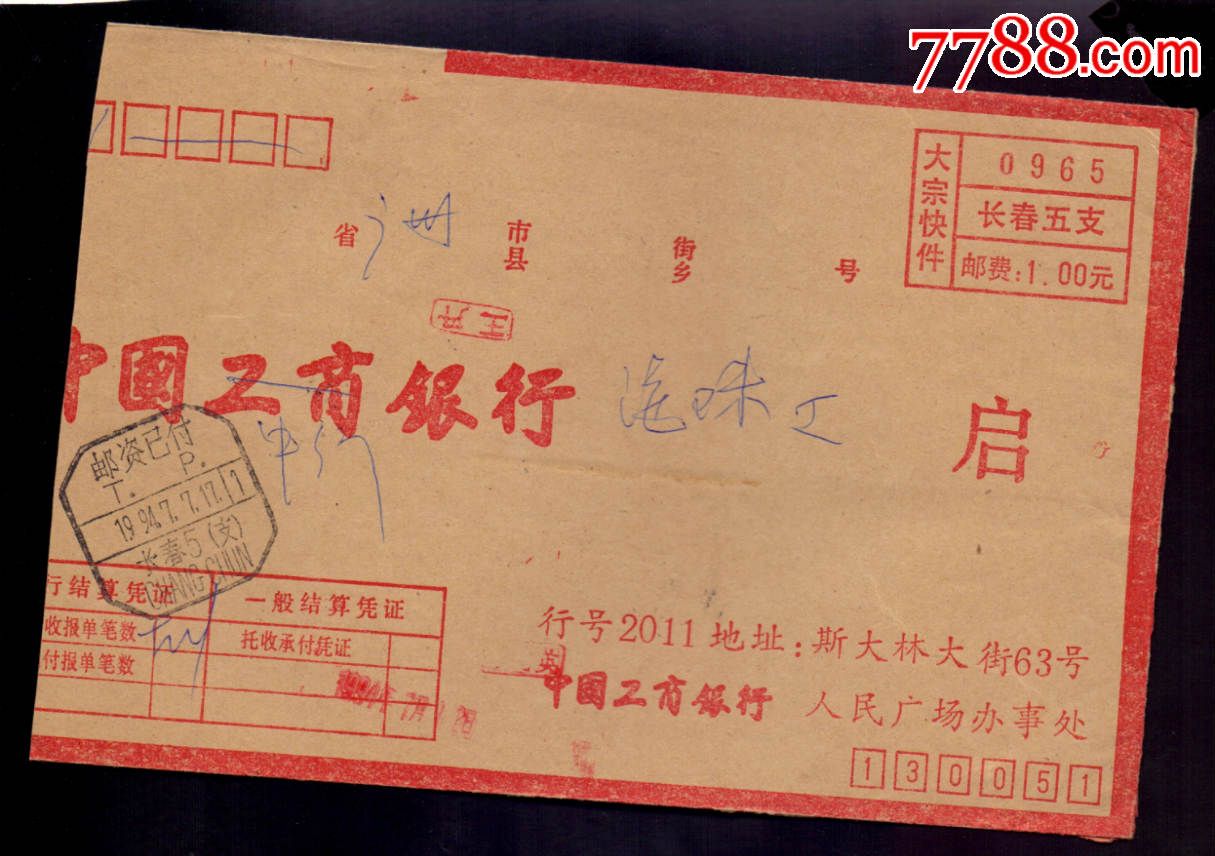 7788.com
大宗快件
0965
长春五支
邮费:1.00元
省 广州 市县 街乡 号
中國工商银行 海珠区
启
邮资已付
T. P.
1994.7.7.17
长春5(支)
CHANGCHUN
行结算凭证
一般结算凭证
收报单笔数
托收承付凭证
付报单笔数
行号2011地址:斯大林大街63号
中國工商银行 人民广场办事处
130051